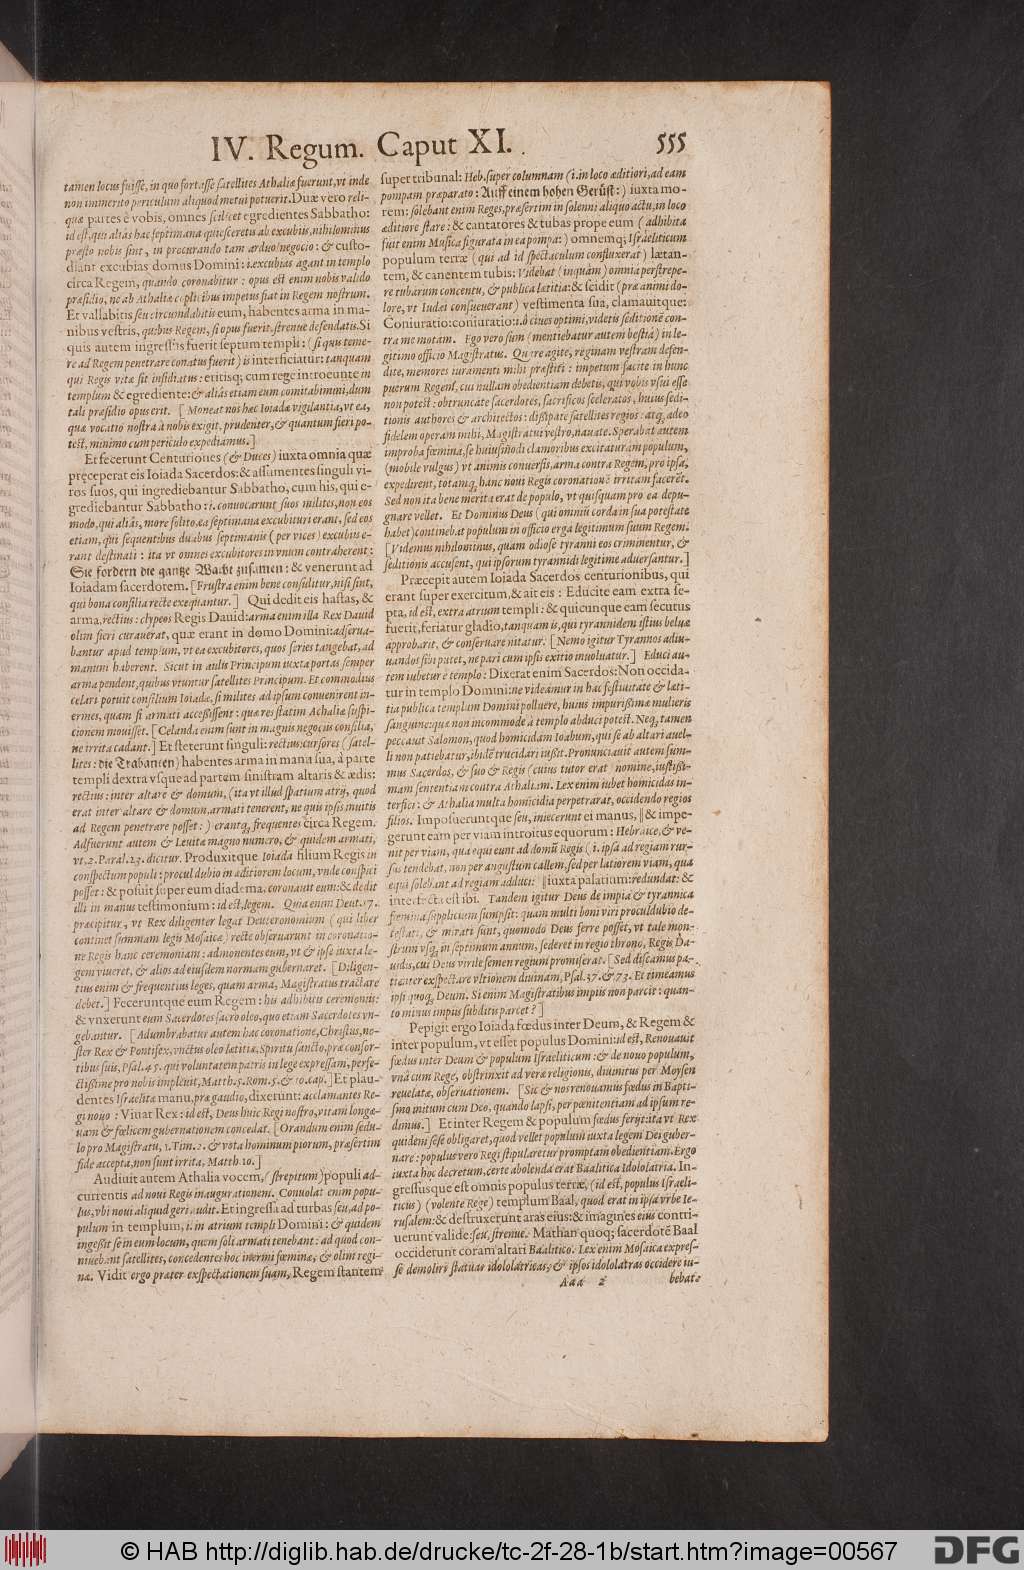 IV. Regum. Caput XI.
555
tamen locus fuisse, in quo fortasse satellites Athaliæ fuerunt, vt inde
non immerito periculum aliquod metui potuerit. Duæ vero reli-
quæ partes è vobis, omnes scilicet egredientes Sabbatho:
id est, qui alias hac septimana quiesceretis ab excubiis, nihilominus
præsto nobis sint, in procurando tam arduo negocio: & custo-
diant excubias domus Domini: i. excubias agant in templo
circa Regem, quando coronabitur: opus est enim nobis valido
præsidio, ne ab Athaliæ complicibus impetus fiat in Regem nostrum.
Et vallabitis seu circumdabitis eum, habentes arma in ma-
nibus vestris, quibus Regem, si opus fuerit, strenue defendatis. Si
quis autem ingressus fuerit septum templi: (si quis teme-
re ad Regem penetrare conatus fuerit) is interficiatur: tanquam
qui Regis vitæ sit insidiatus: eritisq; cum rege introeunte in
templum & egrediente: & aliàs etiam eum comitabimini, dum
tali præsidio opus erit. [Moneat nos hæc Ioiadæ vigilantia, vt ea,
quæ vocatio nostra à nobis exigit, prudenter, & quantum fieri po-
test, minimo cum periculo expediamus.]
Et fecerunt Centuriones (& Duces) iuxta omnia quæ
præceperat eis Ioiada Sacerdos: & assumentes singuli vi-
ros suos, qui ingrediebantur Sabbatho, cum his, qui e-
grediebantur Sabbatho: i. conuocarunt suos milites, non eos
modo, qui aliàs, more solito, ea septimana excubituri erant, sed eos
etiam, qui sequentibus duabus septimanis (per vices) excubiis e-
rant destinati: ita vt omnes excubitores in vnum contraherent:
Sie fordern die gantze Wacht zusamen: & venerunt ad
Ioiadam sacerdotem. [Frustra enim bene consulitur, nisi sint,
qui bona consilia recte exequantur.] Qui dedit eis hastas, &
arma, rectius: clypeos Regis Dauid: arma enim illa Rex Dauid
olim fieri curauerat, quæ erant in domo Domini: adserua-
bantur apud templum, vt ea excubitores, quos series tangebat, ad
manum haberent. Sicut in aulis Principum iuxta portas semper
arma pendent, quibus vtuntur satellites Principum. Et commodius
celari potuit consilium Ioiadæ, si milites ad ipsum conuenirent in-
ermes, quam si armati accessissent: quæ res statim Athaliæ suspi-
cionem mouisset. [Celanda enim sunt in magnis negociis consilia,
ne irrita cadant.] Et steterunt singuli: rectius: cursores (satel-
lites: die Trabanten) habentes arma in manu sua, à parte
templi dextra vsque ad partem sinistram altaris & ædis:
rectius: inter altare & domum, (ita vt illud spatium atrij, quod
erat inter altare & domum, armati tenerent, ne quis ipsis inuitis
ad Regem penetrare posset:) erantq; frequentes circa Regem.
Adfuerunt autem & Leuitæ magno numero, & quidem armati,
vt, 2. Paral. 23. dicitur. Produxitque Ioiada filium Regis in
conspectum populi: procul dubio in editiorem locum, vnde conspici
posset: & posuit super eum diadema. coronauit eum: & dedit
illi in manus testimonium: id est, legem. Quia enim Deut. 17.
præcipitur, vt Rex diligenter legat Deuteronomium (qui liber
continet summam legis Mosaicæ) recte obseruarunt in coronatio-
ne Regis hanc ceremoniam: admonentes eum, vt & ipse iuxta le-
gem viueret, & alios ad eiusdem normam gubernaret. [Diligen-
tius enim & frequentius leges, quam arma, Magistratus tractare
debet.] Feceruntque eum Regem: his adhibitis ceremoniis:
& vnxerunt eum Sacerdotes sacro oleo, quo etiam Sacerdotes vn-
gebantur. [Adumbrabatur autem hac coronatione, Christus, no-
ster Rex & Pontifex, vnctus oleo lætitiæ, Spiritu sancto, præ consor-
tibus suis, Psal. 45. qui voluntatem patris in lege expressam, perfe-
ctissime pro nobis impleuit, Matth. 5. Rom. 5. & 10. cap.] Et plau-
dentes Israelitæ manu, præ gaudio, dixerunt: acclamantes Re-
gi nouo: Viuat Rex: id est, Deus huic Regi nostro, vitam longæ-
uam & fœlicem gubernationem concedat. [Orandum enim sedu-
lo pro Magistratu, 1. Tim. 2. & vota hominum piorum, præsertim
fide accepta, non sunt irrita, Matth. 10.]
Audiuit autem Athalia vocem, (strepitum) populi ad-
currentis ad noui Regis inaugurationem. Conuolat enim popu-
lus, vbi noui aliquid geri audit. Et ingressa ad turbas seu, ad po-
pulum in templum, i. in atrium templi Domini: & quidem
ingessit se in eum locum, quem soli armati tenebant: ad quod con-
niuebant satellites, concedentes hoc inermi fœminæ, & olim regi-
næ. Vidit ergo præter exspectationem suam, Regem stantem
super tribunal: Heb. super columnam (i. in loco æditiori, ad eam
pompam præparato: Auff einem hohen Gerüst:) iuxta mo-
rem: solebant enim Reges, præsertim in solenni aliquo actu, in loco
æditiore stare: & cantatores & tubas prope eum (adhibita
fuit enim Musica figurata in ea pompa:) omnemq; Israeliticum
populum terræ (qui ad id spectaculum confluxerat) lætan-
tem, & canentem tubis: Videbat (inquam) omnia perstrepe-
re tubarum concentu, & publica lætitia: & scidit (præ animi do-
lore, vt Iudæi consueuerant) vestimenta sua, clamauitque:
Coniuratio: coniuratio: i. ô ciues optimi, videtis seditionē con-
tra me motam. Ego vero sum (mentiebatur autem bestia) in le-
gitimo officio Magistratus. Quare agite, reginam vestram defen-
dite, memores iuramenti mihi præstiti: impetum facite in hunc
puerum Regem, cui nullam obedientiam debetis, qui vobis vsui esse
non potest: obtruncate sacerdotes, sacrificos sceleratos, huius sedi-
tionis authores & architectos: dissipate satellites regios: atq, adeo
fidelem operam mihi, Magistratui vestro, nauate. Sperabat autem
improba fœmina, se huiusmodi clamoribus excitaturam populum,
(mobile vulgus) vt animis conuersis, arma contra Regem, pro ipsa,
expedirent, totamq, hanc noui Regis coronationē irritam facerēt.
Sed non ita bene merita erat de populo, vt quisquam pro ea depu-
gnare vellet. Et Dominus Deus (qui omniū corda in sua potestate
habet) continebat populum in officio erga legitimum suum Regem.
[Videmus nihilominus, quam odiose tyranni eos criminentur, &
seditionis accusent, qui ipsorum tyrannidi legitime aduersantur.]
Præcepit autem Ioiada Sacerdos centurionibus, qui
erant super exercitum, & ait eis: Educite eam extra se-
pta, id est, extra atrium templi: & quicunque eam secutus
fuerit, feriatur gladio, tanquam is, qui tyrannidem istius beluæ
approbarit, & conseruare nitatur. [Nemo igitur Tyrannos adiu-
uandos sibi putet, ne pari cum ipsis exitio inuoluatur.] Educi au-
tem iubetur è templo: Dixerat enim Sacerdos: Non occida-
tur in templo Domini: ne videamur in hac festiuitate & læti-
tia publica templum Domini polluere, huius impurissimæ mulieris
sanguine: quæ non incommode à templo abduci potest. Neq, tamen
peccauit Salomon, quod homicidam Ioabum, qui se ab altari auel-
li non patiebatur, ibidē trucidari iussit. Pronunciauit autem sum-
mus Sacerdos, & suo & Regis (cuius tutor erat) nomine, iustissi-
mam sententiam contra Athaliam. Lex enim iubet homicidas in-
terfici: & Athalia multa homicidia perpetrarat, occidendo regios
filios. Imposueruntque seu, iniecerunt ei manus, || & impe-
gerunt eam per viam introitus equorum: Hebraice, & ve-
nit per viam, qua equi eunt ad domū Regis (i. ipsa ad regiam rur-
sus tendebat, non per angustum callem, sed per latiorem viam, qua
equi solebant ad regiam adduci: || iuxta palatium: redundat: &
interfecta est ibi. Tandem igitur Deus de impia & tyrannica
fœmina supplicium sumpsit: quam multi boni viri procul dubio de-
testati, & mirati sunt, quomodo Deus ferre posset, vt tale mon-
strum vsq, in septimum annum, sederet in regio throno, Regis Da-
uidis, cui Deus virile semen regium promiserat. [Sed discamus pa-
tienter exspectare vltionem diuinam, Psal. 37. & 73. Et timeamus
ipsi quoq, Deum. Si enim Magistratibus impiis non parcit: quan-
to minus impiis subditis parcet?]
Pepigit ergo Ioiada fœdus inter Deum, & Regem &
inter populum, vt esset populus Domini: id est, Renouauit
fœdus inter Deum & populum Israeliticum: & de nouo populum,
vnā cum Rege, obstrinxit ad veræ religionis, diuinitus per Moysen
reuelatæ, obseruationem. [Sic & nos renouamus fœdus in Bapti-
smo initum cum Deo, quando lapsi, per pœnitentiam ad ipsum re-
dimus.] Et inter Regem & populum fœdus feriit: ita vt Rex
quidem sese obligaret, quod vellet populum iuxta legem Dei guber-
nare: populus vero Regi stipularetur promptam obedientiam. Ergo
iuxta hoc decretum, certe abolenda erat Baalitica Idololatria. In-
gressusque est omnis populus terræ, (id est, populus Israeli-
ticus) (volente Rege) templum Baal, quod erat in ipsa vrbe Ie-
rusalem: & destruxerunt aras eius: & imagines eius contri-
uerunt valide: seu, strenue. Mathan quoq; sacerdotē Baal
occiderunt coram altari Baalitico. Lex enim Mosaica expres-
se demoliri statuas idololatricas, & ipsos idololatras occidere iu-
Aaa 2
bebat.
© HAB http://diglib.hab.de/drucke/tc-2f-28-1b/start.htm?image=00567
DFG